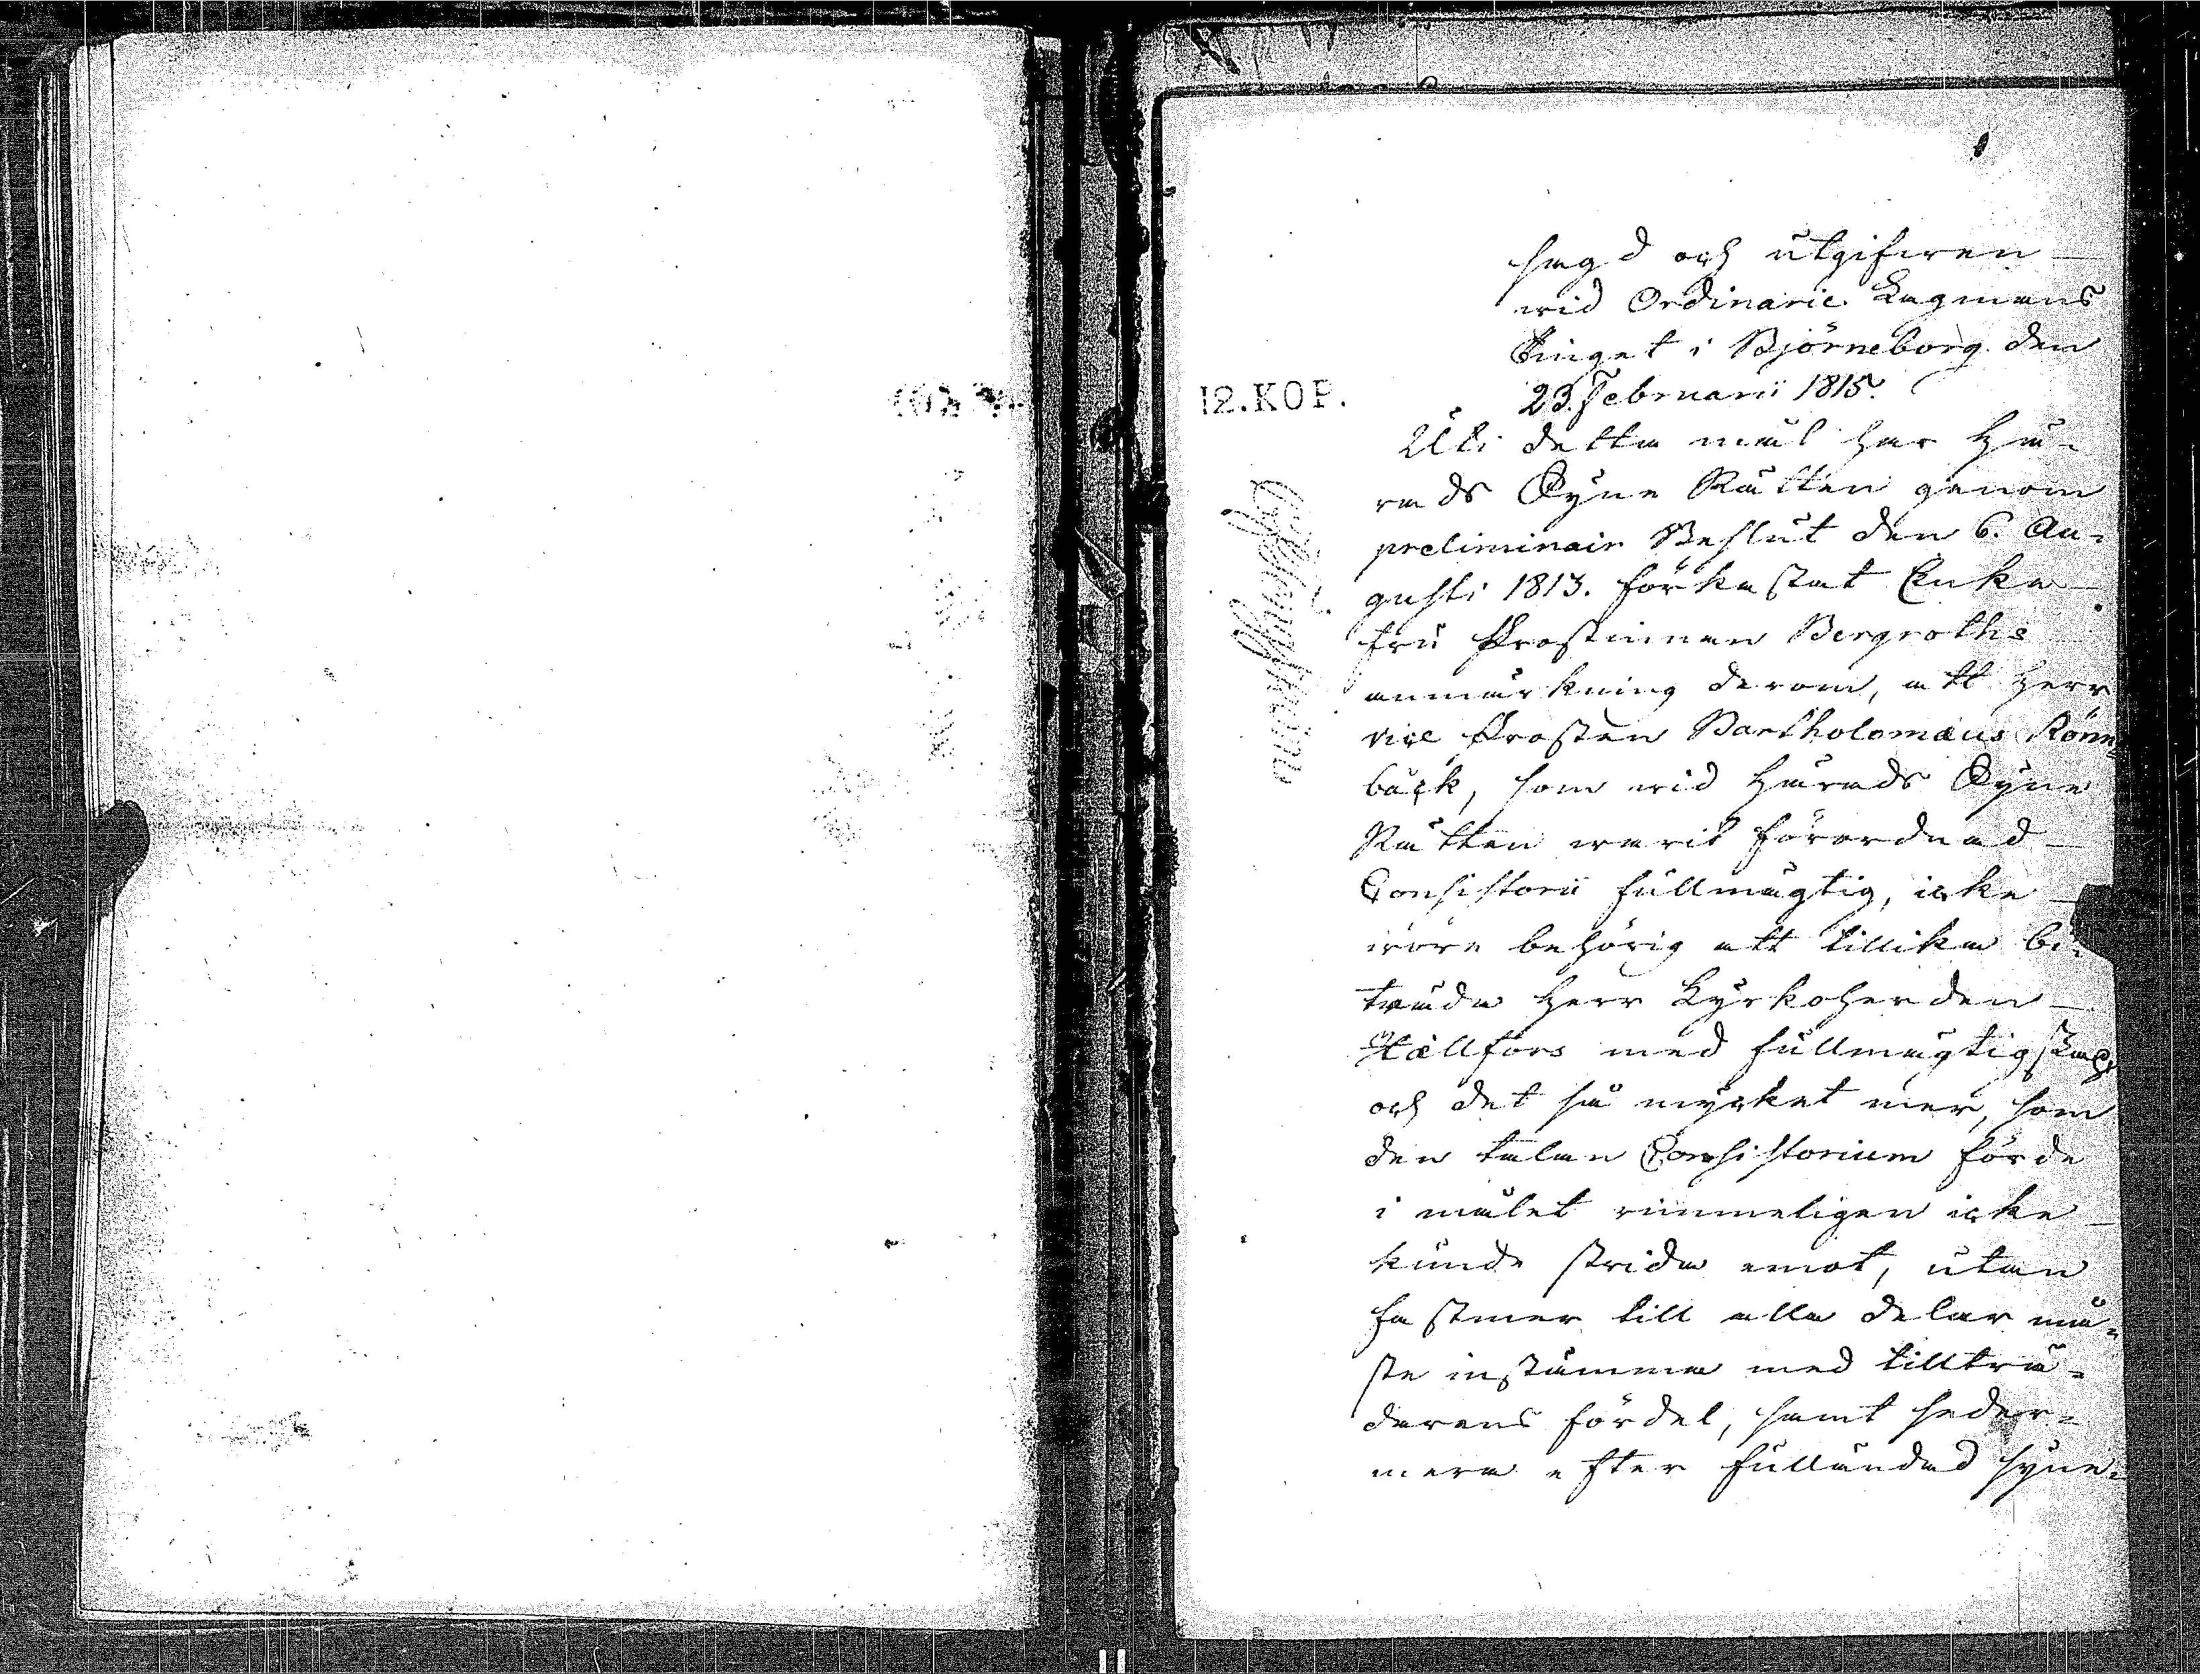 sagd och utgifwen
wid Ordinarie Lagmans
Tinget i Björneborg den
12.KOP.
23. Februarii 1815.
Uti detta mål har Hä-
rads Syne Rätten genom
preliminair Beslut den 6. Au-
gusti 1813. förkastat Enke
fru Prostinnan Bergroths
anmärkning derom, att Herr
vice Prosten Bartholomæus Rönn-
bäck, som wid Härads Syne
Rätten warit förordnad
Consistorii fullmägtig, icke
wore behörig att tillika be-
träda Herr Kyrkoherden
Hällfors med fullmägtigskap
och det så mycket mer, som
den talan Consistorium förde
i målet rimmeligen icke
kunde strida emot, utan
fastmer till alla delar må-
ste instämma med tillträ-
darens fördel, samt seder-
mera efter fulländad syne-